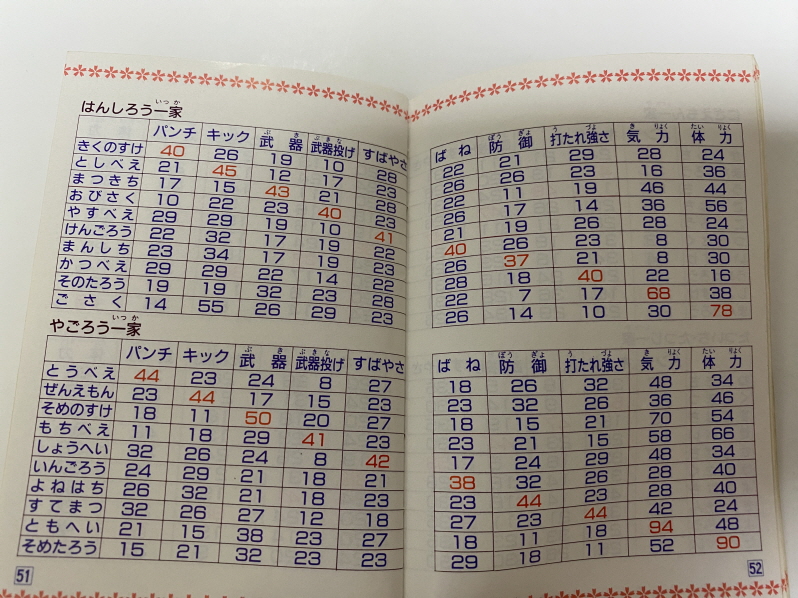 はんしろう一家
いっか
パンチ キック 武器 武器投げ すばやさ
ぶき ぶきな
きくのすけ 40 26 19 10 26
としべえ 21 45 12 17 23
まつきち 17 15 43 21 28
おびさく 10 22 23 40 23
やすべえ 29 29 19 10 41
けんごろう 22 32 17 19 22
まんしち 23 34 17 19 23
かつべえ 29 29 22 14 22
そのたろう 19 19 32 23 28
ごさく 14 55 26 29 23
やごろう一家
いっか
パンチ キック 武器 武器投げ すばやさ
ぶき ぶきな
とうべえ 44 23 24 8 27
ぜんえもん 23 44 17 15 23
そめのすけ 18 11 50 20 27
もちべえ 11 18 29 41 23
しょうへい 32 26 24 8 42
いんごろう 24 29 21 18 21
よねはち 26 32 21 18 23
すてまつ 32 26 27 12 18
ともへい 21 15 38 23 27
そめたろう 15 21 32 23 23
51
ばね 防御 打たれ強さ 気力 体力
ぼうぎょ うづよ きりょく たいりょく
22 21 29 28 24
26 26 23 16 36
22 11 19 46 44
26 17 14 36 56
21 19 26 28 24
40 26 23 8 30
26 37 21 8 30
28 18 40 22 16
22 7 17 68 38
26 14 10 30 78
ばね 防御 打たれ強さ 気力 体力
ぼうぎょ うづよ きりょく たいりょく
18 26 32 48 34
23 32 26 36 46
18 15 21 70 54
23 21 15 58 66
17 24 29 48 34
38 32 26 28 40
23 44 23 28 40
27 23 44 42 24
18 11 18 94 48
29 18 11 52 90
52